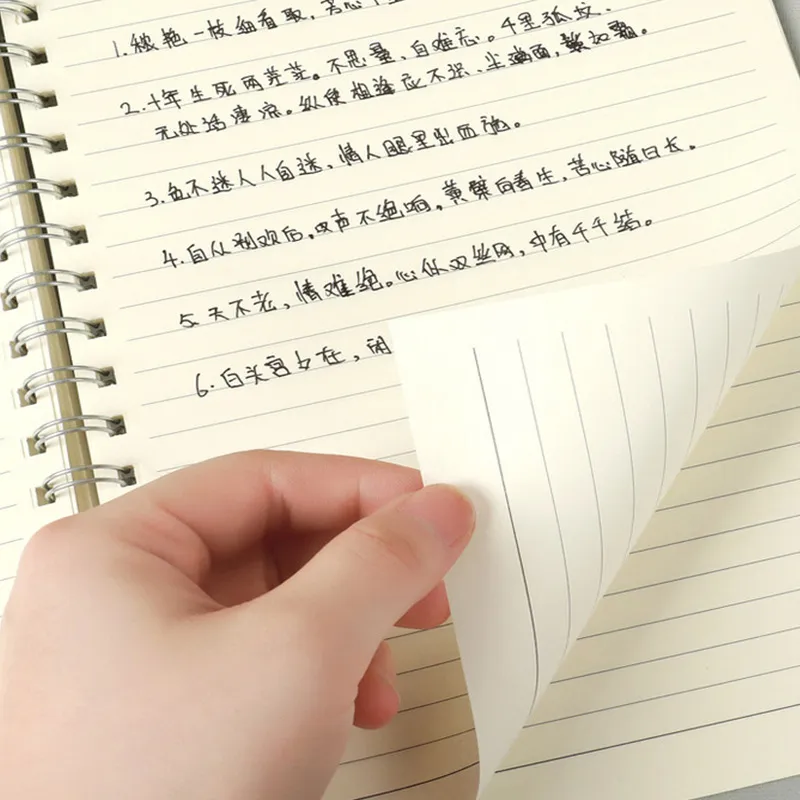 1. 秾艳一枝细看取,芳心千
2. 十年生死两茫茫。不思量、自难忘。千里孤坟、
无处话凄凉。纵使相逢应不识、尘满面,鬓如霜。
3. 色不迷人人自迷,情人眼里出西施。
4. 自从别欢后,叹声不绝响,黄檗向春生,苦心随日长。
5 天不老,情难绝。心似双丝网,中有千千结。
6. 白头宫女在,闲